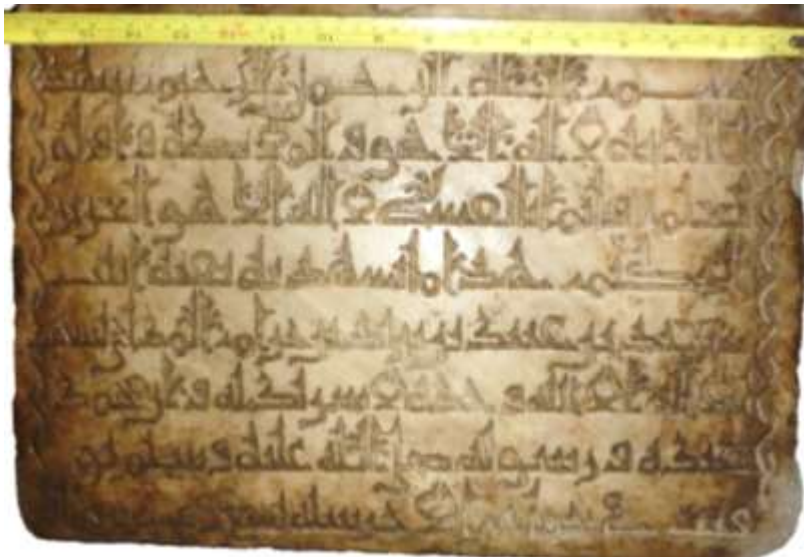 بسم الله الرحمن الرحيم شهد ا
لله انه لا اله الا هو والملئكة واولوا
العلم قائما بالقسط لا اله الا هو العزيز
الحكيم هذا ما تشهد به ابنت
محمد بن تشهد
ان لا اله الا الله وحده لا شريك له وان محمدا
عبده ورسوله صلى الله عليه وسلم تو
فيت في شهر سنة